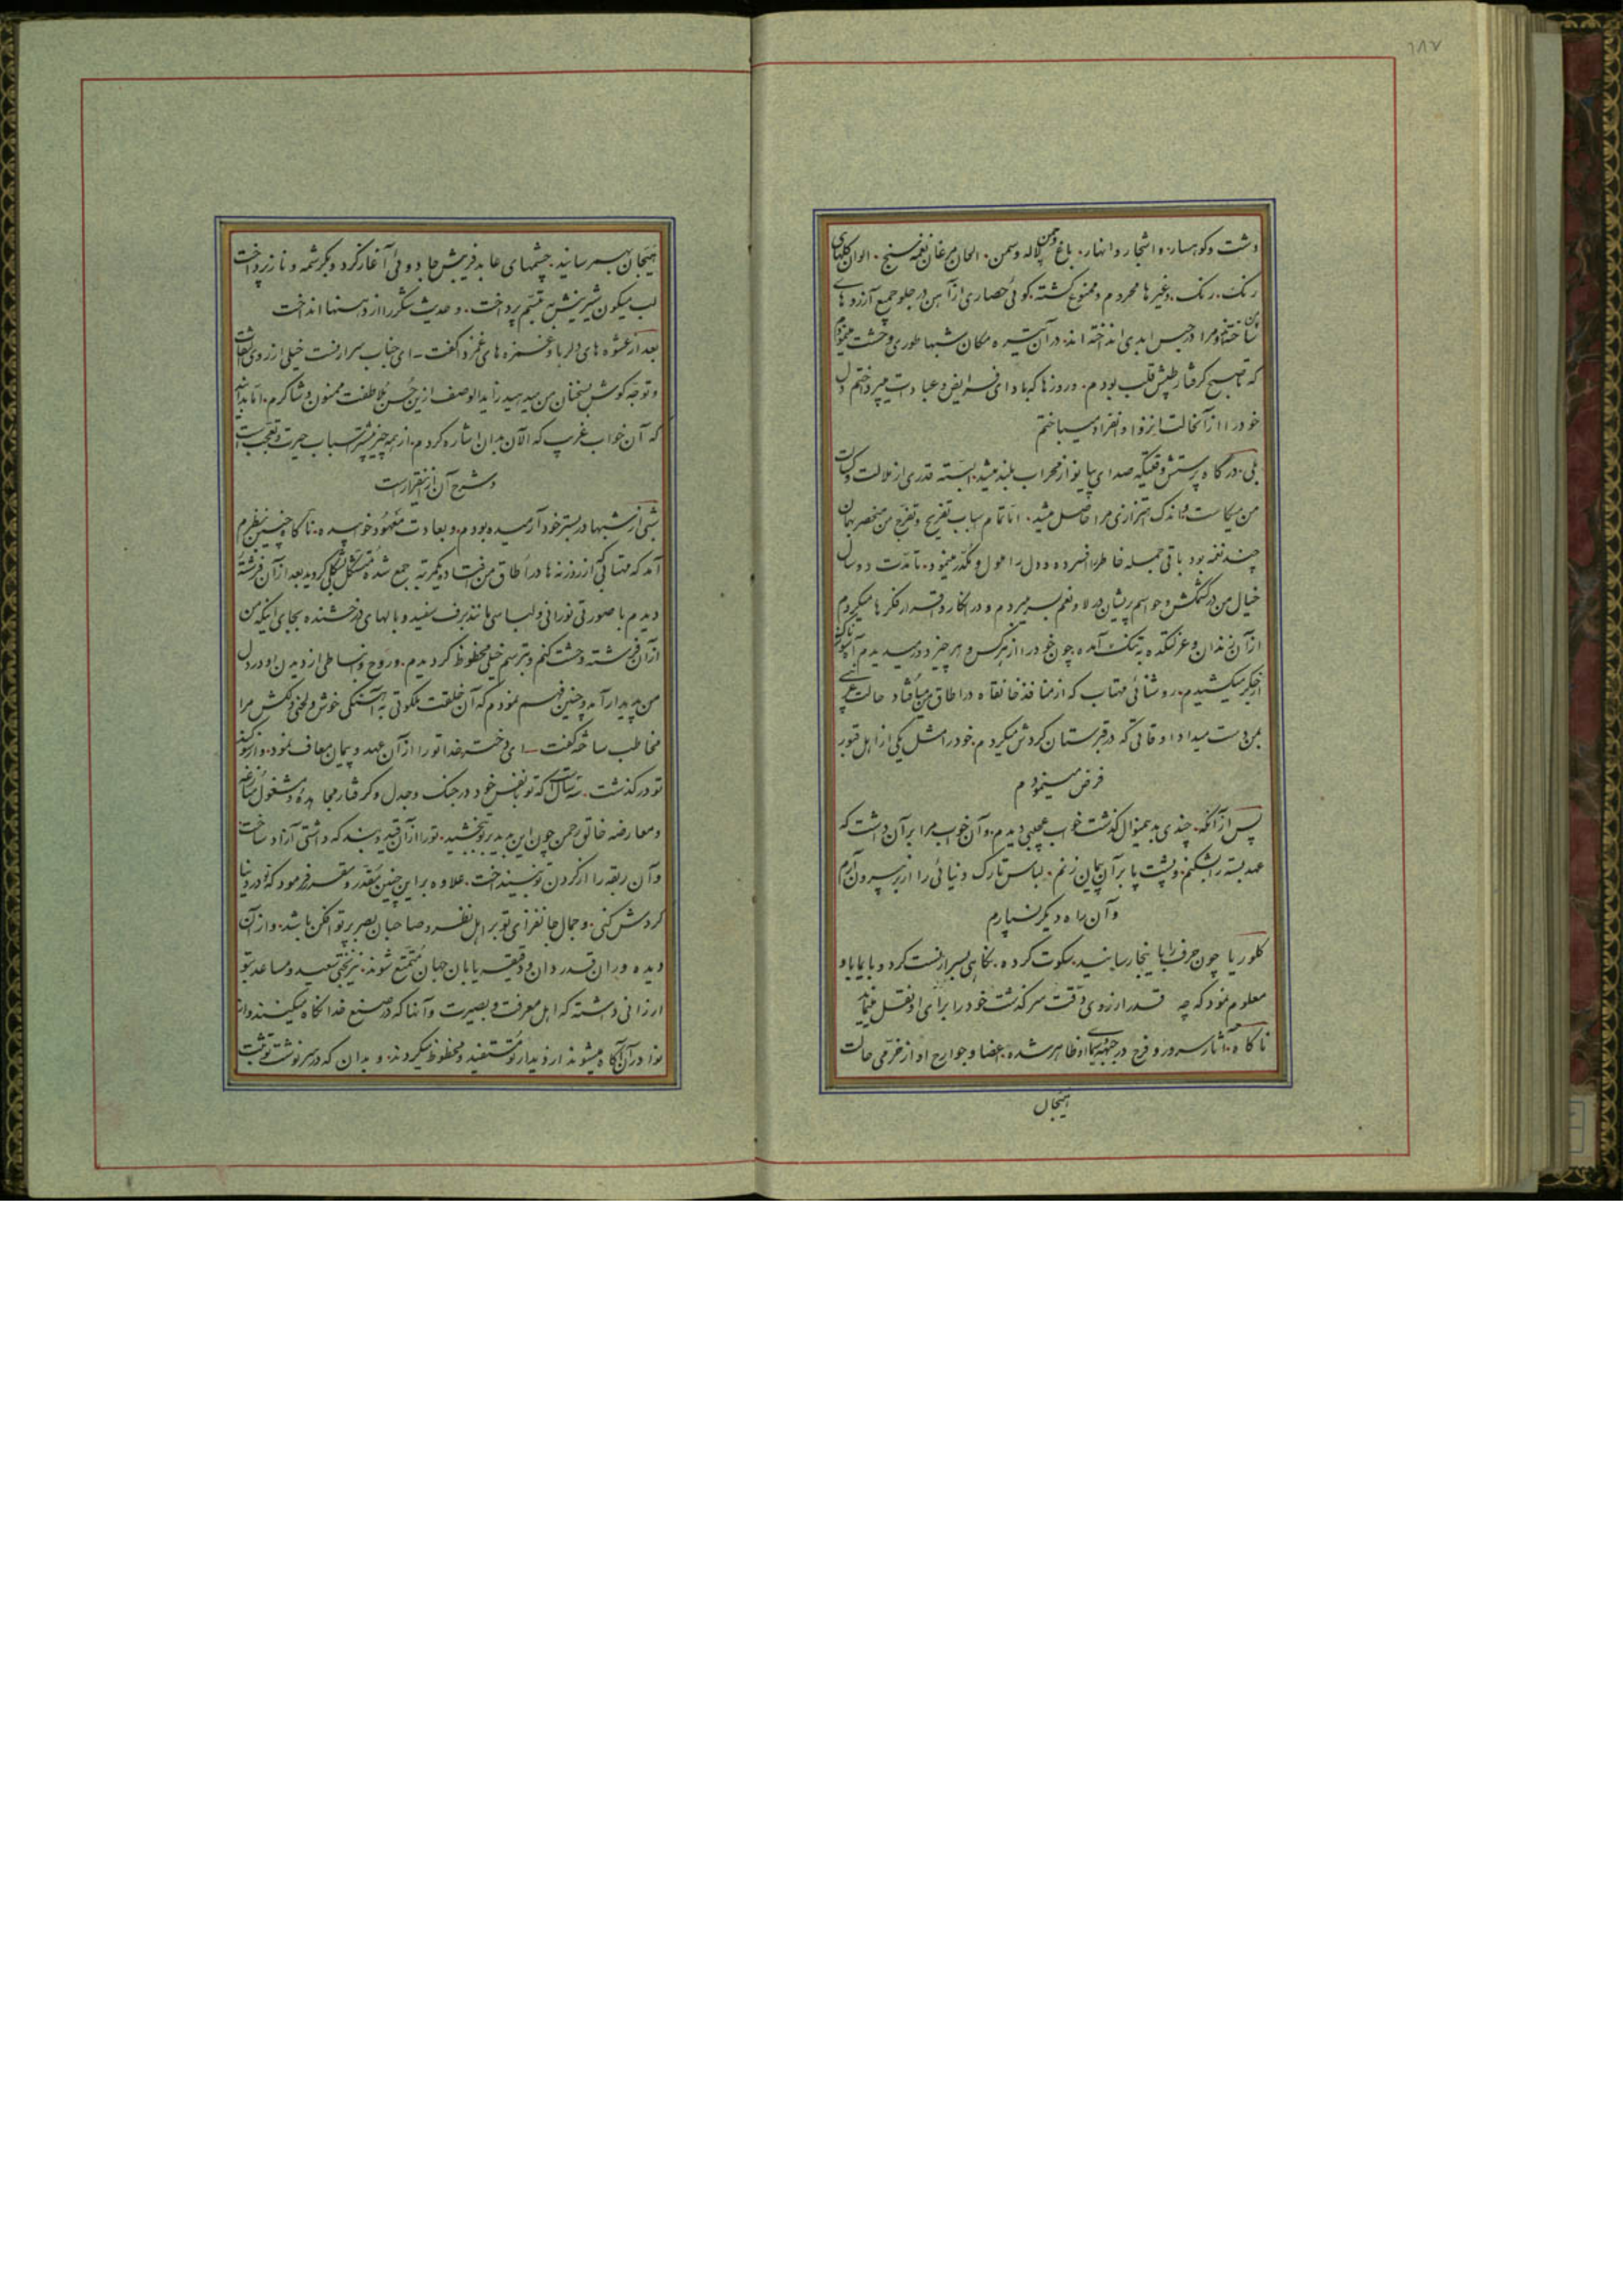 ۱۸۷
دشت وکوهسار، و اشجار و انهار، باغ وچمن لاله وسمن، الحان مرغان نغمه سنج، الوان کلهای
رنک برنک، وغیرها محروم وممنوع کشته، کوئی حصاری از آهن در جلو جمیع آرزوهای
من ساخته اند ومرا در حبس ابدی انداخته اند، در آن تیره مکان شبها طوری وحشت مینمودم
که تا صبح کرفتار طپش قلب بودم، و روزها که با دای فرایض و عبادت میپرداختم دل
خود را از آنحالت انزوا و انفراد میساختم
بلی در کاه پرستش وقتیکه صدای پیانو از محراب بلند میشد، البته قدری از ملالت وکسالت
من میکاست واندک اهتزازی مرا حاصل میشد، امّا تمام اسباب تفریح وتفرّج من منحصر بهمان
چند نغمه بود باقی جمله خاطر افسرده و دل را ملول ومکدّر مینمود، تا مدّت دو سال
خیال من در کشمکش وحواسم پریشان در لا و نعم بسر میبردم و در انکار و اقرار فکرها میکردم
از آن زندان وعزلتکده بتنک آمده چون خود را از هرکس و هر چیز دور میدیدم آه سوزناک
از جکر میکشیدم، روشنائی مهتاب که از منافذ خانقاه در اطاق میافتاد حالت غریبی
بمن دست میداد و اوقاتی که در قبرستان کردش میکردم خود را مثل یکی از اهل قبور
فرض مینمودم
پس از آنکه چندی بدینمنوال کذشت خواب عجیبی دیدم، و آن خواب مرا بر آن داشت که
عهد بسته را بشکنم، وپشت پا بر آن پیمان زنم، لباس تارک دنیائی را از بر بیرون آرم
و آن راه دیکر نسپارم
کلوریا چون حرف را باینجا رسانید، سکوت کرده، نکاهی بسرارنست کرد و بایماء باو
معلوم نمود که چه قدر از روی دقّت سرکذشت خود را برای او نقل مینماید
ناکاه آثار سرور و فرح در جبهه سیمای او ظاهر شده، اعضا وجوارح او از خرّمی حالت
هیجان
هیجان بهم رسانید، چشمهای عابد فریبش جادوئی آغاز کرد و بکرشمه و ناز پرداخت
لب میکون شیرینش به تبسّم پرداخت، و حدیث شکر را از دهنها انداخت
بعد از عشوه های دلربا وغمزه های غمزدا کفت ـ ای جناب سرارنست خیلی از روی التفات
وتوجّه کوش بسخنان من میدهید زاید الوصف ازین حُسن مُلاطفت ممنون وشاکرم، امّا بدانید
که آن خواب غریب که الآن بدان اشاره کردم، از همه چیز بیشتر اسباب حیرت وتعجّب است
وشرح آن از ینقرار است
شبی از شبها در بستر خود آرمیده بودم، و بعادت مَعهُود خوابیده، ناکاه چنین بنظرم
آمد که مهتابی که از روزنه ها در اطاق من میافتاد ویکمرتبه جمع شده مُتشکّل بشکلی کردید، بعد از آن فرشتهٔ
دیدم با صورتی نورانی ولباسی مانند برف سفید و بالهای درخشنده بجای اینکه من
از آن فرشته وحشت کنم وبترسم خیلی محظوظ کردیدم، و رَوح ونشاطی از دیدن او در دل
من پدیدار آمد وچنین فهم نمودم که آن خلقت ملکوتی به آهنکی خوش ولحنی دلکش مرا
مخاطب ساخته کفت ـ ای دختر خدا تو را از آن عهد و پیمان معاف نمود، و از کناه
تو در کذشت، سه سال است که تو با نفس خود در جنک وجدل وکرفتار مجاهده ومشغول منازعه
ومعارضه خالق رحمن چون این بدید بر تو ببخشید، تو را از آن قید وبند که داشتی آزاد ساخت
و آن ربقه را از کردن تو بینداخت، علاوه بر این چنین مُقدّر ومقرّر فرمود که تو در دنیا
کردش کنی، و جمال جانفزای تو بر اهل نظر وصاحبان بصر پرتو افکن باشد، و از آن
دیده وران قدردان ودقیقه یابان جهان مُتمتّع شوند، نیز بختی سعید ومساعد بتو
ارزانی داشته که اهل معرفت وبصیرت و آنها که در صنع خدا نکاه میکنند و از
نوادر آن آکاه میشوند از دیدار تو مُستفید ومحظوظ میکردند، و بدان که در سرنوشت تو ثبت